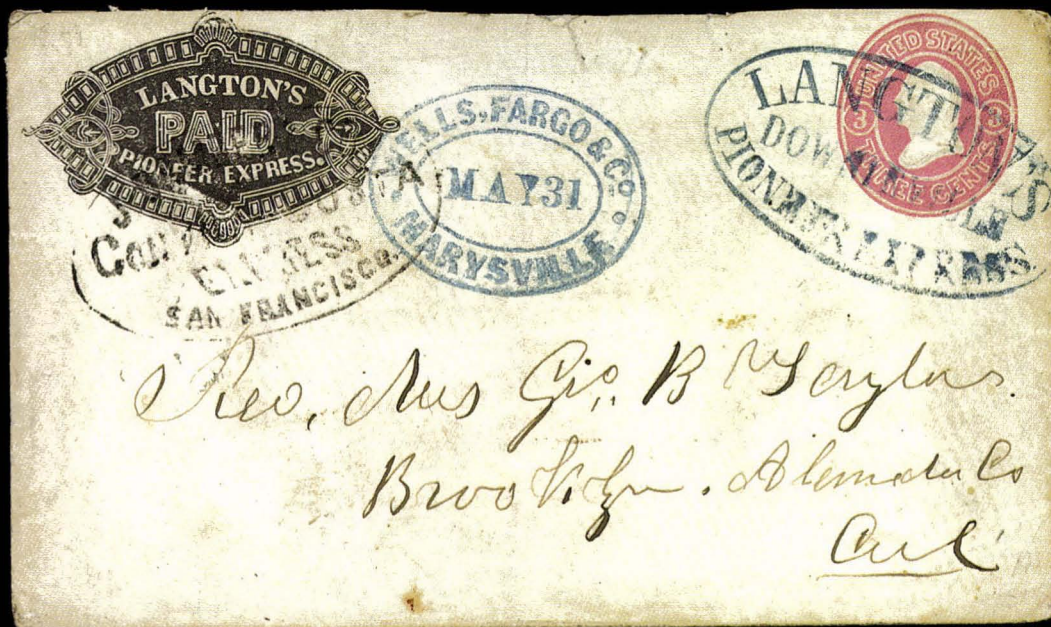 LANGTON'S
PAID
PIONEER EXPRESS.
WELLS, FARGO & Co.
MAY 31
MARYSVILLE
UNITED STATES
3 3
THREE CENTS
LANGTON'S
PIONEER EXPRESS
EXPRESS
SAN FRANCISCO.
Geo. B Taylor
Brooklyn. Alameda Co
Cal